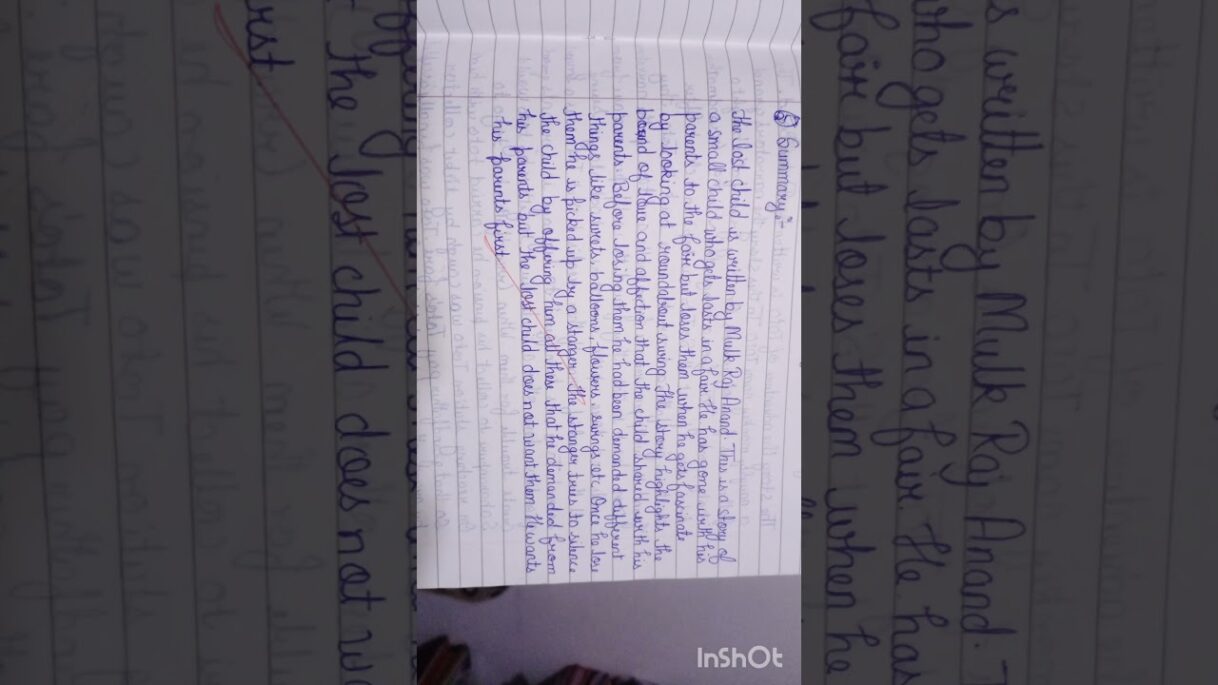 6) Summary:-
The lost child is written by Mulk Raj Anand. This is a story of
a small child who gets losts in a fair. He has gone with his
parents to the fair but loses them when he gets fascinate
by looking at roundabout swing. The story highlights the
bound of love and affection that the child shared with his
parents. Before losing them he had been demanded different
things like sweets, balloons, flowers, swings etc. Once he lose
them he is picked up by a stanger. The stanger tries to silence
the child by offering him all these that he demanded from
his parents but the lost child does not want them He wants
his parents first
InShOt